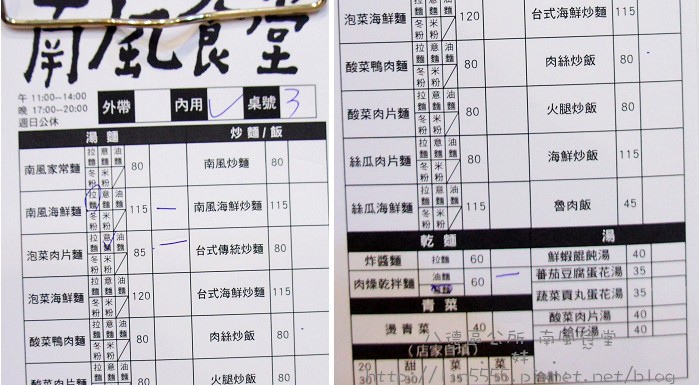 南風食堂
午 11:00—14:00
晚 17:00—20:00
週日公休
外帶 內用 ✓ 桌號 3
湯麵 炒麵/飯
南風家常麵 拉麵 意麵 油麵 冬粉 米粉 80 南風炒麵 80
南風海鮮麵 拉麵 意麵 油麵 冬粉 米粉 115 一 南風海鮮炒麵 115
泡菜肉片麵 拉麵 意麵 油麵 冬粉 米粉 85 一 台式傳統炒麵 80
泡菜海鮮麵 拉麵 意麵 油麵 冬粉 米粉 120 台式海鮮炒麵 115
酸菜鴨肉麵 拉麵 意麵 油麵 冬粉 米粉 80 肉絲炒飯 80
酸菜肉片麵 拉麵 意麵 油麵 80 火腿炒飯 80
泡菜海鮮麵 麵 麵 麵 冬粉 米粉 120 台式海鮮炒麵 115
酸菜鴨肉麵 拉麵 意麵 油麵 冬粉 米粉 80 肉絲炒飯 80
酸菜肉片麵 拉麵 意麵 油麵 冬粉 米粉 80 火腿炒飯 80
絲瓜肉片麵 拉麵 意麵 油麵 冬粉 米粉 80 海鮮炒飯 115
絲瓜海鮮麵 拉麵 意麵 油麵 冬粉 米粉 115 魯肉飯 45
乾麵 湯
炸醬麵 拉麵 60 鮮蝦餛飩湯 40
肉燥乾拌麵 油麵 60 一 蕃茄豆腐蛋花湯 35
青菜 蔬菜貢丸蛋花湯 35
燙青菜 40 酸菜肉片湯 40
(店家自填) 蛤仔湯 40
20 甜 菜 菜 合計
30 30 35 50
南風食堂
pixnet.net/blog